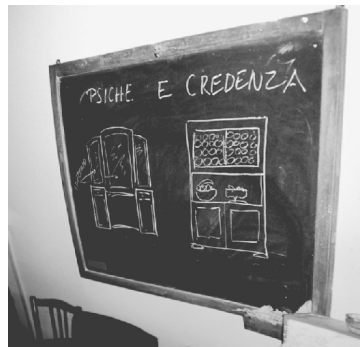 PSICHE E CREDENZA